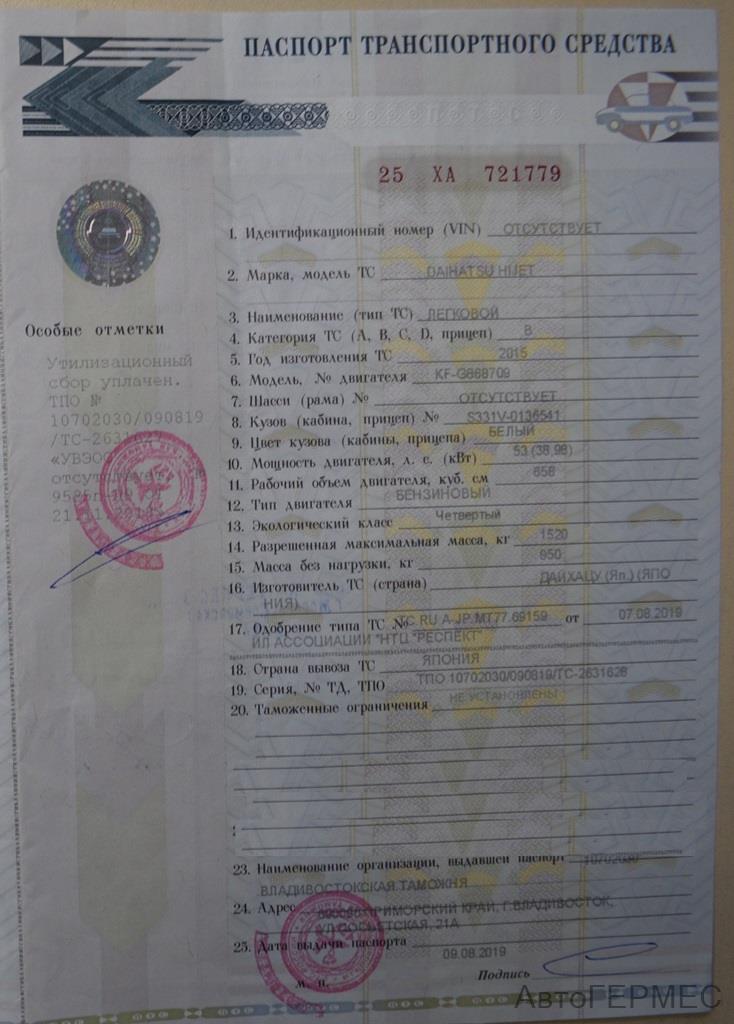 ПАСПОРТ ТРАНСПОРТНОГО СРЕДСТВА
25 ХА 721779
1. Идентификационный номер (VIN) ОТСУТСТВУЕТ
2. Марка, модель ТС DAIHATSU HIJET
3. Наименование (тип ТС) ЛЕГКОВОЙ
4. Категория ТС (А, В, С, D, прицеп) В
5. Год изготовления ТС 2015
6. Модель, № двигателя KF-G868709
7. Шасси (рама) № ОТСУТСТВУЕТ
8. Кузов (кабина, прицеп) № S331V-0136541
9. Цвет кузова (кабины, прицепа) БЕЛЫЙ
10. Мощность двигателя, л. с. (кВт) 53 (38,98)
11. Рабочий объем двигателя, куб. см 658
12. Тип двигателя БЕНЗИНОВЫЙ
13. Экологический класс Четвертый
14. Разрешенная максимальная масса, кг 1520
15. Масса без нагрузки, кг 950
16. Изготовитель ТС (страна) ДАЙХАЦУ (Яп.) (ЯПО
НИЯ)
17. Одобрение типа ТС № ТС RU А-JP.МТ77.69159 от 07.08.2019
ИЛ АССОЦИАЦИИ "НТЦ "РЕСПЕКТ"
18. Страна вывоза ТС ЯПОНИЯ
19. Серия, № ТД, ТПО ТПО 10702030/090819/ТС-2631628
20. Таможенные ограничения НЕ УСТАНОВЛЕНЫ
23. Наименование организации, выдавшей паспорт 10702030
ВЛАДИВОСТОКСКАЯ ТАМОЖНЯ
24. Адрес 690090 ПРИМОРСКИЙ КРАЙ, Г.ВЛАДИВОСТОК,
УЛ ПОСЬЕТСКАЯ, 21А
25. Дата выдачи паспорта 09.08.2019
м. п.
Подпись
Особые отметки
Утилизационный
сбор уплачен.
ТПО №
10702030/090819
/ТС-2631628
«УВЭОС»
отсутствует
АвтоГЕРМЕС